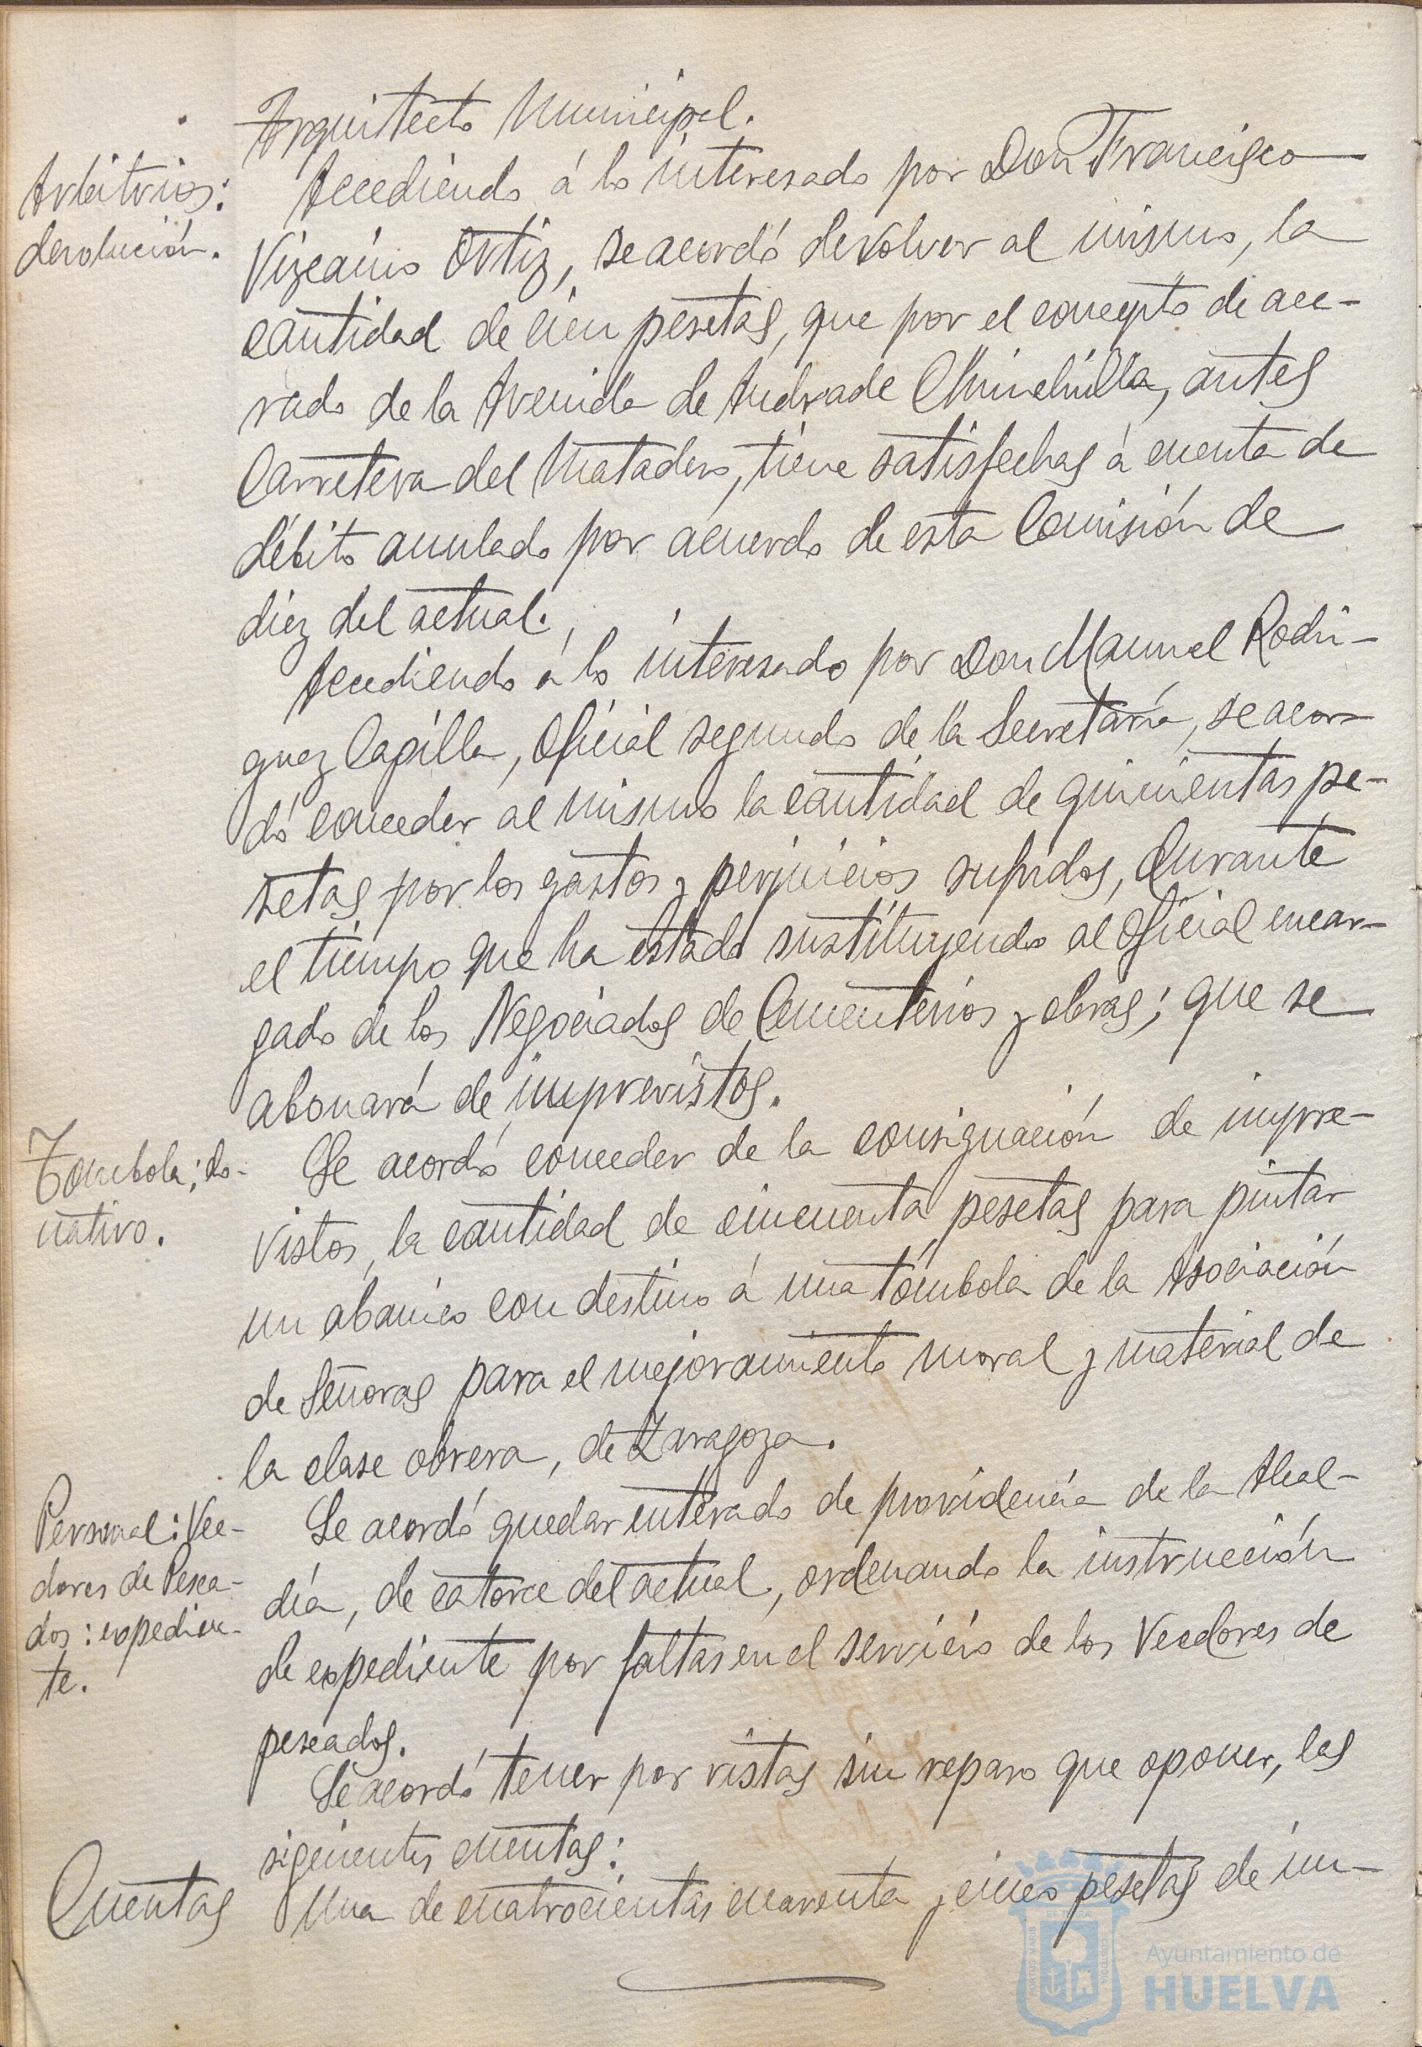 Arquitecto Municipal.
Arbitrios:
devolución.
Accediendo á lo interesado por Don Francisco
Vizcaíno Ortiz, se acordó devolver al mismo, la
cantidad de cien pesetas, que por el concepto de ace-
rado de la Avenida de Andrade Chinchilla, antes
Carretera del Matadero, tiene satisfechas á cuenta de
débito anulado por acuerdo de esta Comisión de
diez del actual.
Accediendo á lo interesado por Don Manuel Rodri-
guez Capilla, Oficial segundo de la Secretaría, se acor-
dó conceder al mismo la cantidad de quinientas pe-
setas por los gastos y perjuicios sufridos, durante
el tiempo que ha estado sustituyendo al Oficial encar-
gado de los Negociados de Cementerios y obras; que se
abonará de imprevistos.
Tómbola; do-
nativo.
Se acordó conceder de la consignación de impre-
vistos, la cantidad de cincuenta pesetas para pintar
un abanico con destino á una tómbola de la Asociación
de Señoras para el mejoramiento moral y material de
la clase obrera, de Zaragoza.
Personal: Vee-
dores de Pesca-
dos: expedien-
te.
Se acordó quedar enterado de providencia de la Alcal-
día, de catorce del actual, ordenando la instrucción
de expediente por faltas en el servicio de los Veedores de
pescados.
Se acordó tener por vistas sin reparo que oponer, las
siguientes cuentas:
Cuentas
Una de cuatrocientas cuarenta y cinco pesetas de im-
Ayuntamiento de
HUELVA